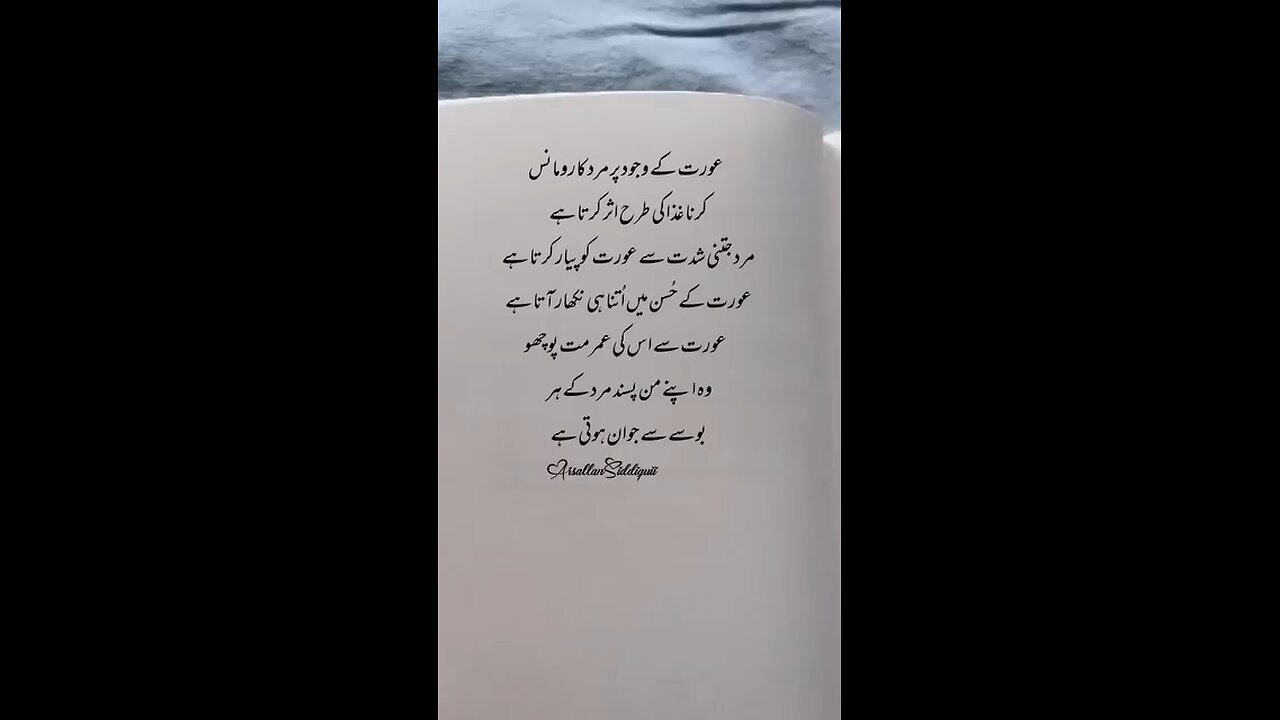 عورت کے وجود پر مرد کا رومانس
کرنا غذا کی طرح اثر کرتا ہے
مرد جتنی شدت سے عورت کو پیار کرتا ہے
عورت کے حُسن میں اُتنا ہی نکھار آتا ہے
عورت سے اس کی عمر مت پوچھو
وہ اپنے من پسند مرد کے ہر
بوسے سے جوان ہوتی ہے
ArsallanSiddiquii